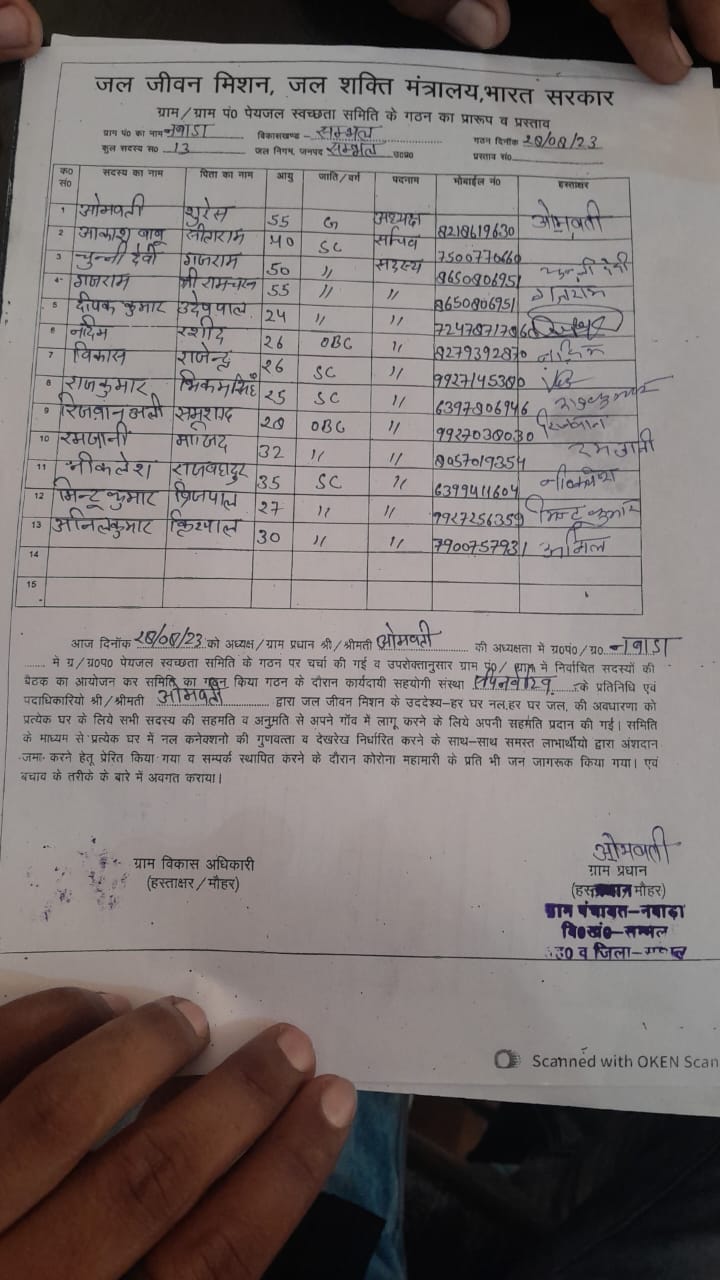 जल जीवन मिशन, जल शक्ति मंत्रालय,भारत सरकार
ग्राम/ग्राम पं० पेयजल स्वच्छता समिति के गठन का प्रारूप व प्रस्ताव
ग्राम पं० का नाम नवाडा विकासखण्ड - सम्भल गठन दिनॉक 28/08/23
कुल सदस्य स० 13 जल निगम, जनपद सम्भल उ०प्र० प्रस्ताव सं०
क० सं० सदस्य का नाम पिता का नाम आयु जाति/वर्ग पदनाम मोबाईल नं० हस्ताक्षर
1 ओमवती सुरेस 55 G अध्यक्ष 8218619630 ओमवती
2 आकाश बाबू सीताराम 40 SC सचिव 7500770660
3 चुन्नी देवी गजराम 50 " सदस्य 8650806951 चुन्नी देवी
4 गजराम श्री रामचरन 55 " " 8650806951 गजराम
5 दीपक कुमार उदेवपाल 24 " "
6 नदिम रशीद 26 OBC " 8279392870 नादिम
7 विकास राजेन्द्र 26 SC " 9927145380
8 राजकुमार भिकमसिंह 25 SC " 6397806946 राजकुमार
9 रिजवान अली समूशाद 28 OBC " 9927038030 रिजवान
10 रमजानी माजिद 32 " " 8057019354 रमजानी
11 नीकलेश राजबहादुर 35 SC " 6399411604
12 मिन्टू कुमार ब्रिजपाल 27 " " 9927256359 मिन्टू कुमार
13 अनिलकुमार 30 " " 7900757931 अनिल
14
15
आज दिनॉक 28/08/23 को अध्यक्ष/ग्राम प्रधान श्री/श्रीमती ओमवती की अध्यक्षता में ग्र०पं०/ग्र० नवाडा
में ग्र/ग्र०प० पेयजल स्वच्छता समिति के गठन पर चर्चा की गई व उपरोक्तानुसार ग्राम पं०/ ग्राम में निर्वाचित सदस्यों की
बैटक का आयोजन कर समिति का गठन किया गठन के दौरान कार्यदायी सहयोगी संस्था के प्रतिनिधि एवं
पदाधिकारियो श्री/श्रीमती ओमवती द्वारा जल जीवन मिशन के उददेश्य-हर घर नल,हर घर जल, की अवधारणा को
प्रत्येक घर के लिये सभी सदस्य की सहमति व अनुमति से अपने गॉव में लागू करने के लिये अपनी सहमति प्रदान की गई। समिति
के माध्यम से प्रत्येक घर में नल कनेक्शनो की गुणवत्ता व देखरेख निर्धारित करने के साथ-साथ समस्त लाभार्थीयो द्वारा अंशदान
जमा करने हेतू प्रेरित किया गया व सम्पर्क स्थापित करने के दौरान कोरोना महामारी के प्रति भी जन जागरूक किया गया। एवं
बचाव के तरीके के बारे में अवगत कराया।
ओमवती
ग्राम विकास अधिकारी ग्राम प्रधान
(हस्ताक्षर/मौहर) मौहर)
ग्राम पंचायत-नवाड़ा
वि०खं०-सम्भल
व जिला-
Scanned with OKEN Scan